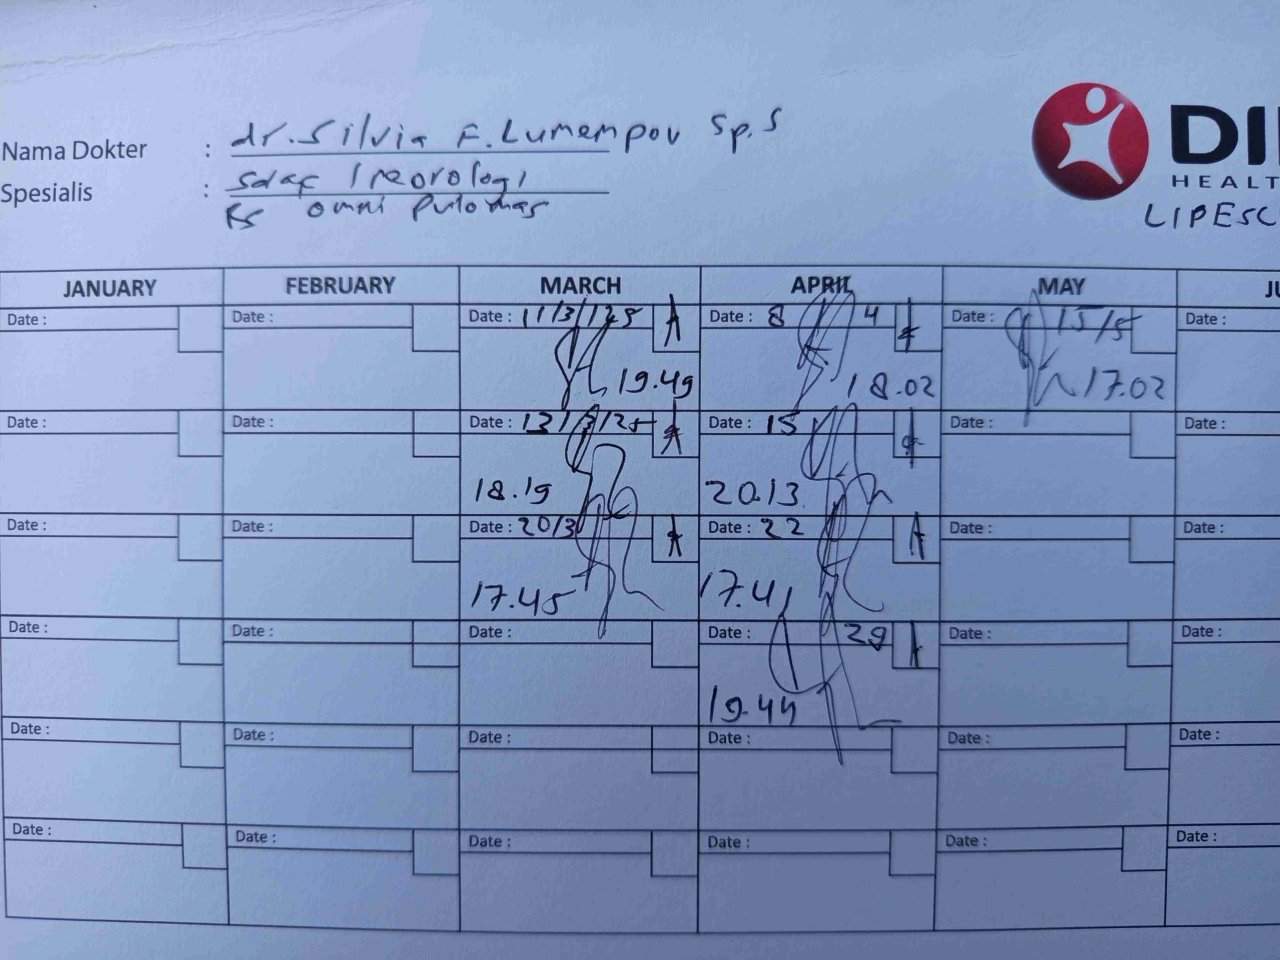 Nama Dokter : dr. Silvia F. Lumempov Sp.S
Spesialis : Saraf / neorologi
RS omni Pulomas
DI
HEALT
LIPESC
JANUARY FEBRUARY MARCH APRIL MAY JU
Date : Date : Date : 11/3/125 A Date : 8 4 Date : 15/5 Date :
19.49 18.02 17.02
Date : Date : Date : 13/3/25 A Date : 15 Date : Date :
18.19 20.13
Date : Date : Date : 20/3 A Date : 22 A Date : Date :
17.45 17.41
Date : Date : Date : Date : 29 A Date : Date :
19.44
Date : Date : Date : Date : Date : Date :
Date : Date : Date : Date : Date : Date :